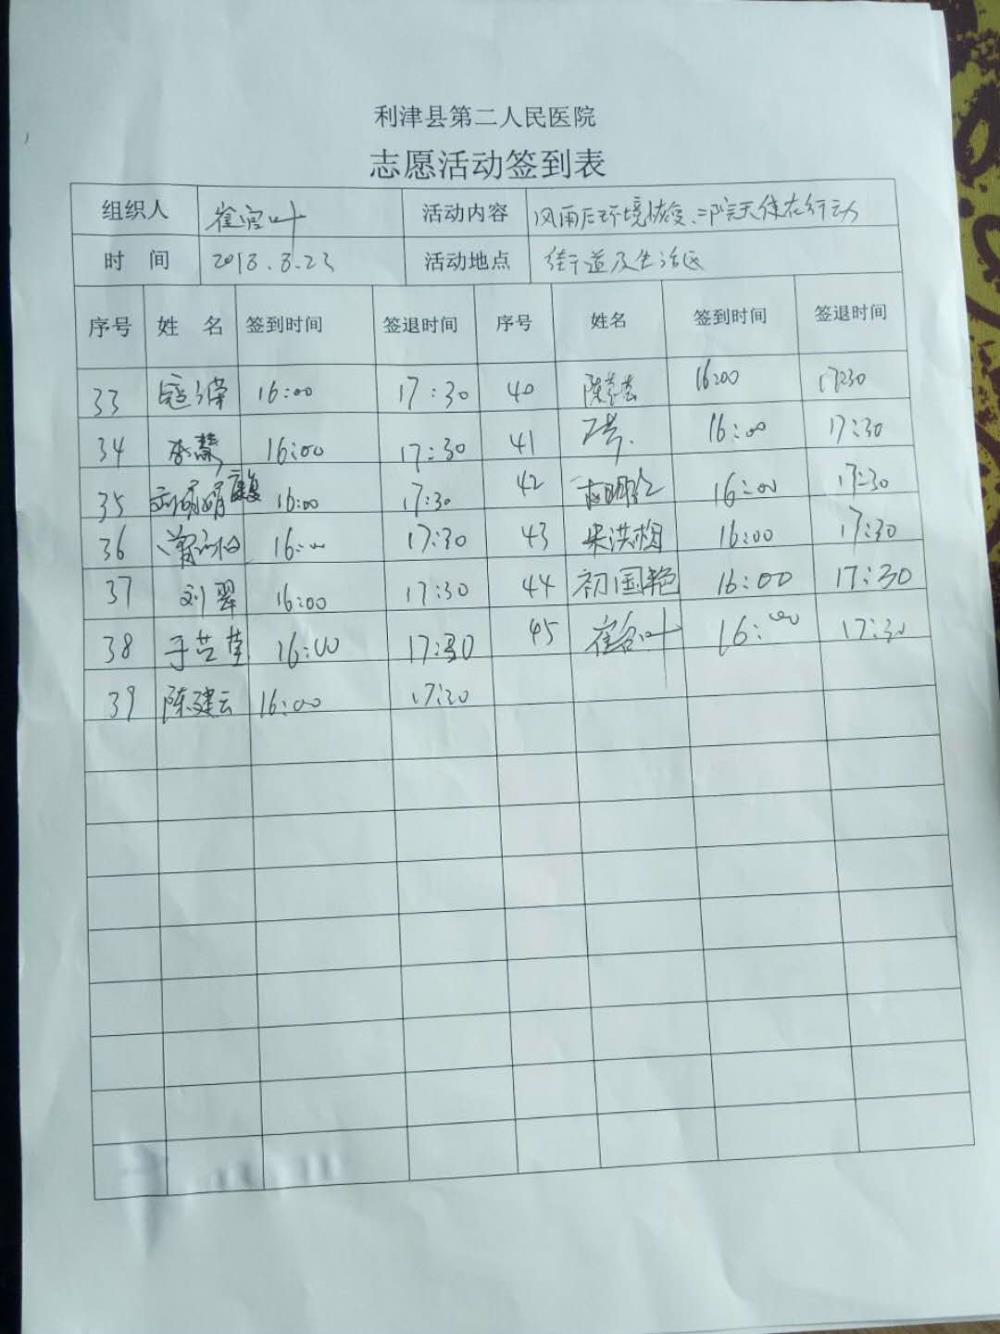 利津县第二人民医院
志愿活动签到表
组织人 崔宫叶 活动内容 风雨后环境恢复、二院天使在行动
时 间 2018.8.23 活动地点 街道及生活区
序号 姓 名 签到时间 签退时间 序号 姓名 签到时间 签退时间
33 16:00 17:30 40 陈 16:00 17:30
34 李慧 16:00 17:30 41 16:00 17:30
35 刘娟娟 康复 16:00 17:30 42 16:00 17:30
36 16:00 17:30 43 宋洪梅 16:00 17:30
37 刘翠 16:00 17:30 44 初国艳 16:00 17:30
38 于芸莹 16:00 17:30 45 崔宫叶 16:00 17:30
39 陈建云 16:00 17:30